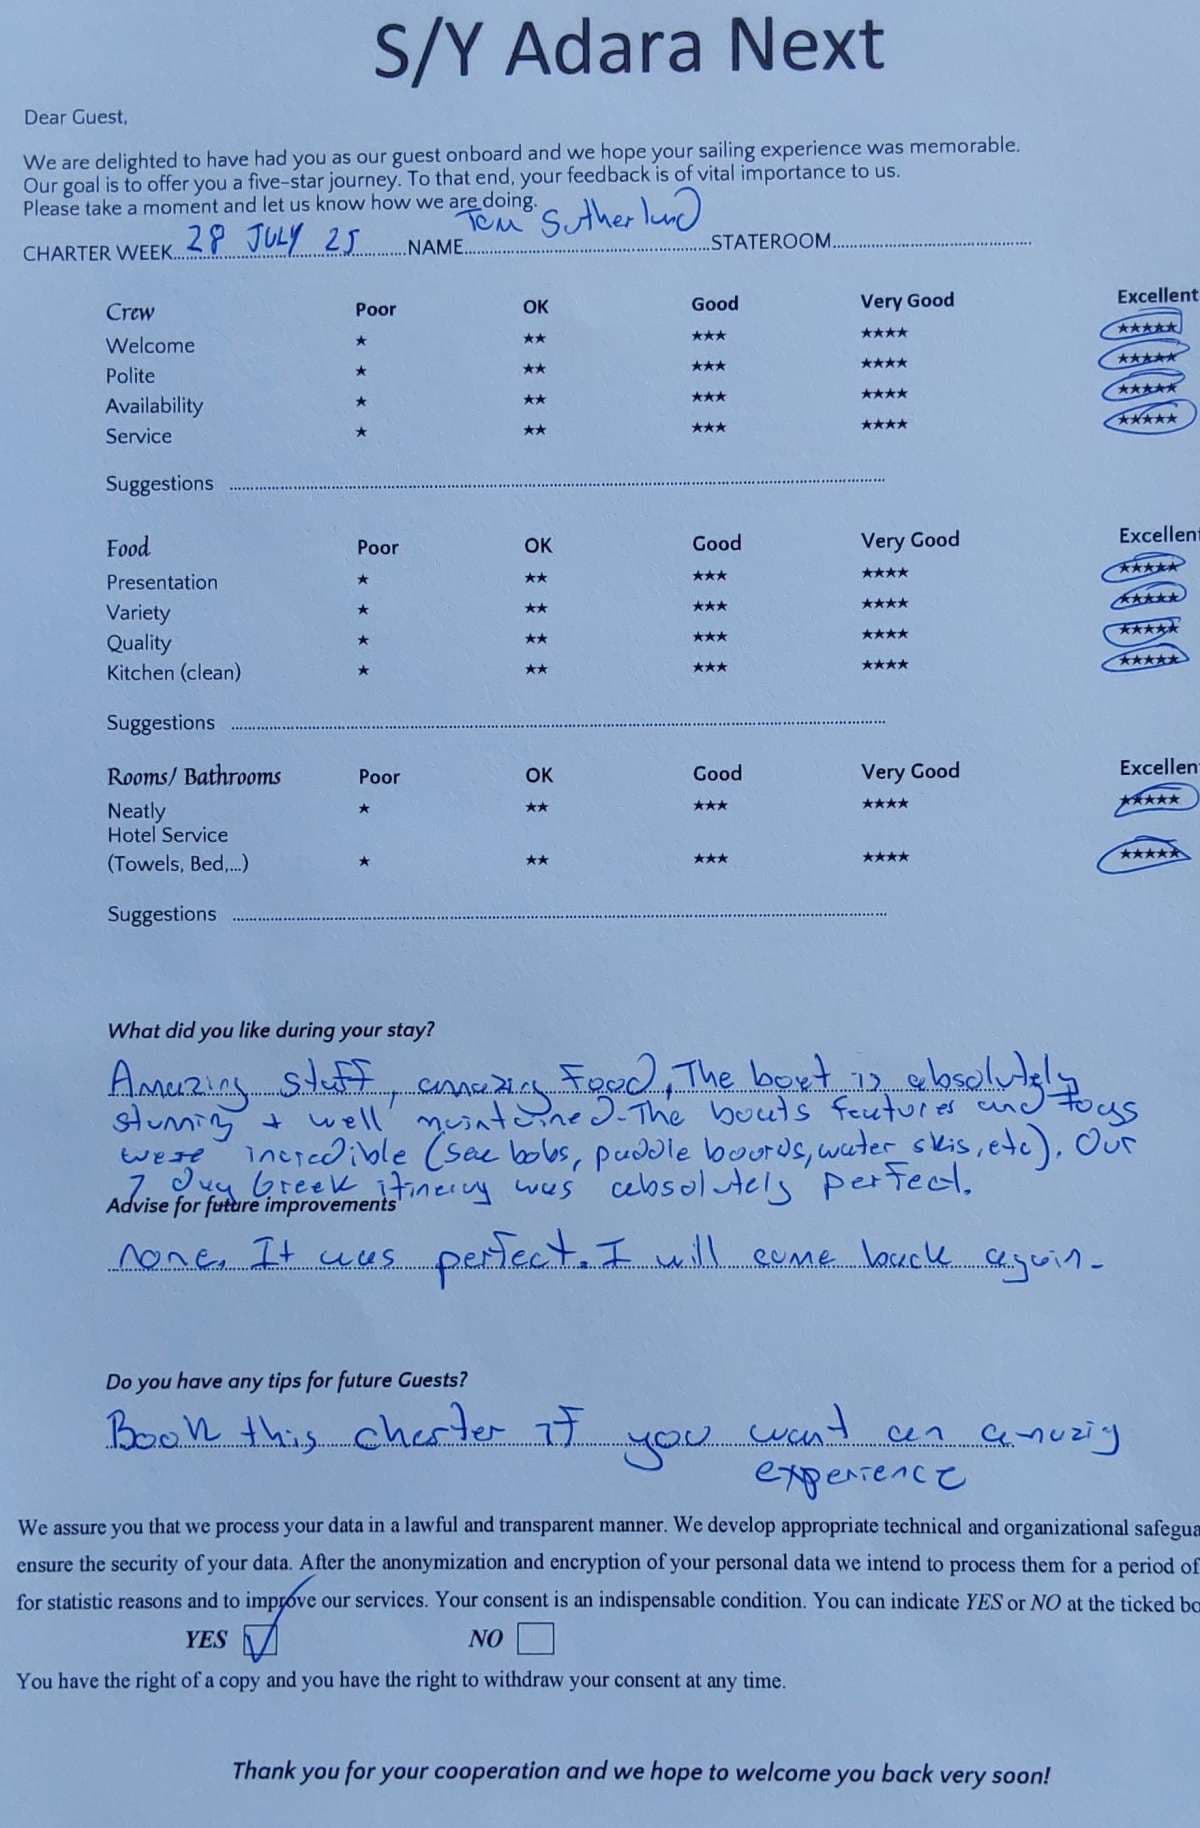 S/Y Adara Next
Dear Guest,
We are delighted to have had you as our guest onboard and we hope your sailing experience was memorable.
Our goal is to offer you a five-star journey. To that end, your feedback is of vital importance to us.
Please take a moment and let us know how we are doing.
CHARTER WEEK 28 JULY 25 NAME Tom Sutherland STATEROOM
Crew Poor OK Good Very Good Excellent
Welcome ★ ★★ ★★★ ★★★★ ★★★★★
Polite ★ ★★ ★★★ ★★★★ ★★★★★
Availability ★ ★★ ★★★ ★★★★ ★★★★★
Service ★ ★★ ★★★ ★★★★ ★★★★★
Suggestions
Food Poor OK Good Very Good Excellent
Presentation ★ ★★ ★★★ ★★★★ ★★★★★
Variety ★ ★★ ★★★ ★★★★ ★★★★★
Quality ★ ★★ ★★★ ★★★★ ★★★★★
Kitchen (clean) ★ ★★ ★★★ ★★★★ ★★★★★
Suggestions
Rooms/ Bathrooms Poor OK Good Very Good Excellen
Neatly ★ ★★ ★★★ ★★★★ ★★★★★
Hotel Service
(Towels, Bed,...) ★ ★★ ★★★ ★★★★ ★★★★★
Suggestions
What did you like during your stay?
Amazing staff, amazing food, The boat is absolutely
stunnig + well maintained. The boats features and toys
were incredible (sea bobs, paddle boards, water skis, etc). Our
7 day Greek itinerary was absolutely perfect.
Advise for future improvements
none. It was perfect. I will come back again.
Do you have any tips for future Guests?
Book this charter if you want an amazig
experience
We assure you that we process your data in a lawful and transparent manner. We develop appropriate technical and organizational safegua
ensure the security of your data. After the anonymization and encryption of your personal data we intend to process them for a period of
for statistic reasons and to improve our services. Your consent is an indispensable condition. You can indicate YES or NO at the ticked bo
YES NO
You have the right of a copy and you have the right to withdraw your consent at any time.
Thank you for your cooperation and we hope to welcome you back very soon!